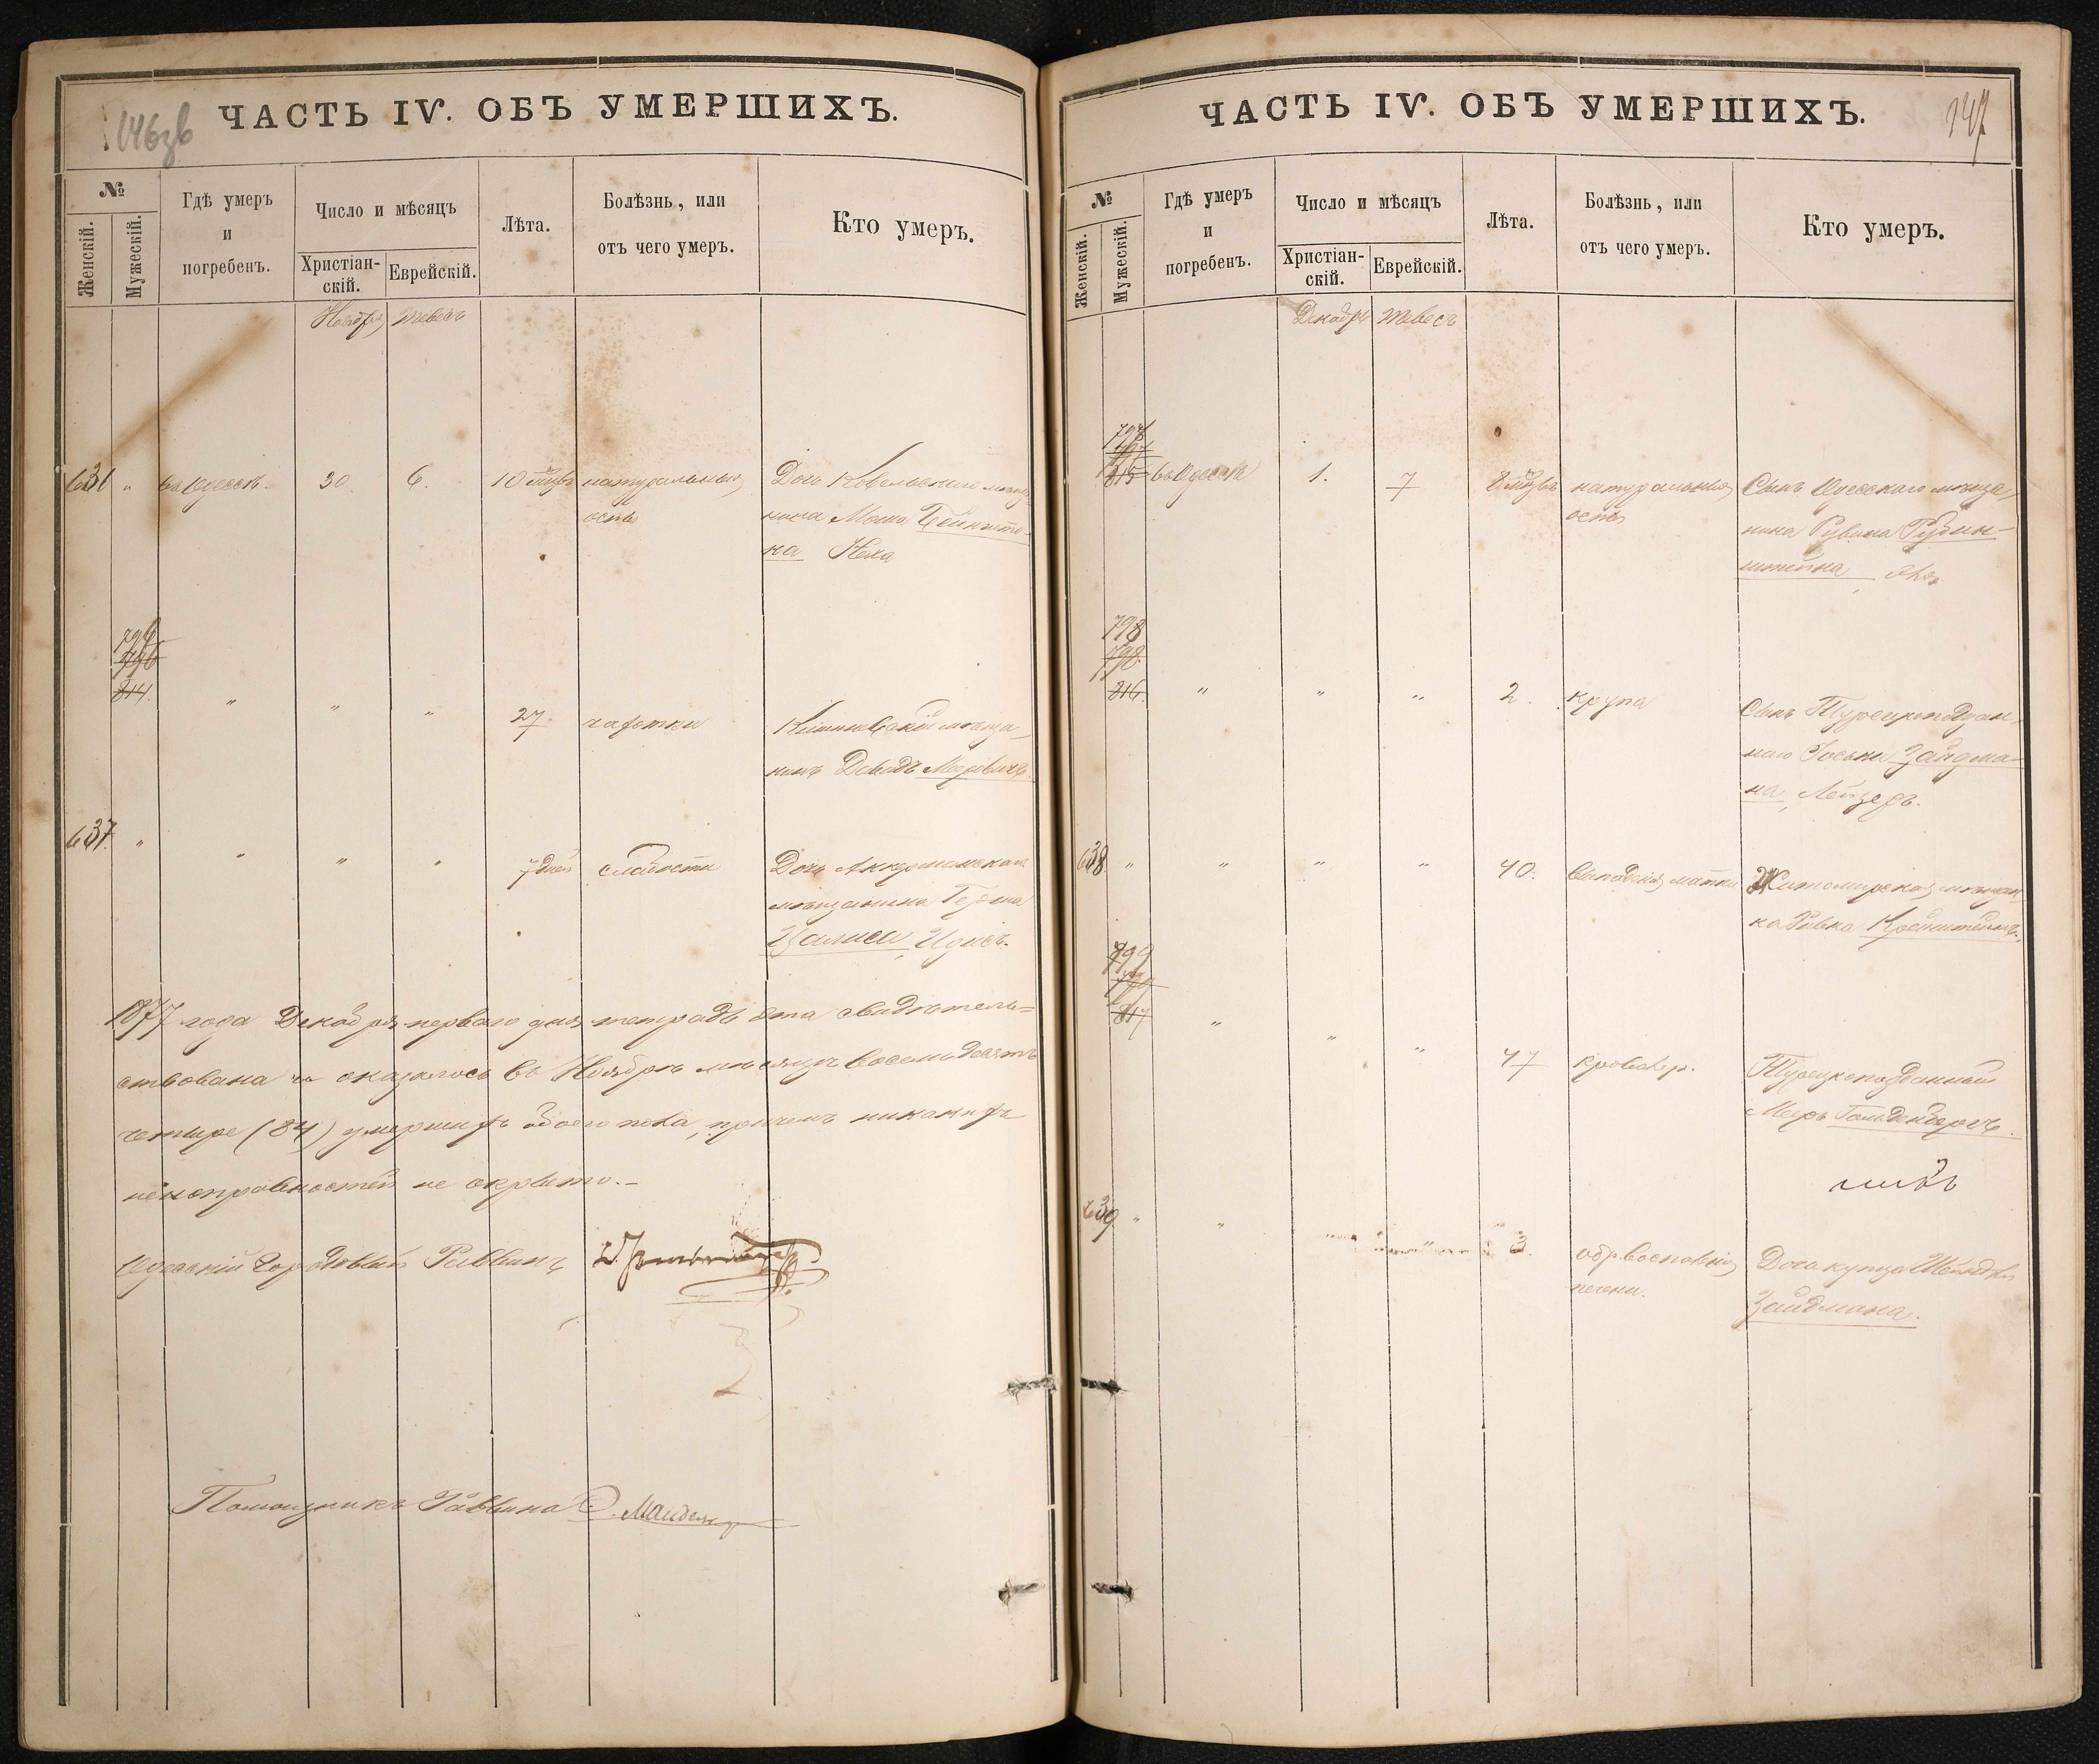 146зв
ЧАСТЬ IV. ОБЪ УМЕРШИХЪ.
№
Женскій.
Мужескій.
Гдѣ умеръ
и
погребенъ.
Число и мѣсяцъ
Христіан-
скій.
Еврейскій.
Лѣта.
Болѣзнь, или
отъ чего умеръ.
Кто умеръ.
Ноября Тевесъ
636 " въ Одессѣ. 30. 6. 10 мѣс натуральная Дочь Ковельскаго мѣща-
оспа нина Мошка
на
796
796
814. " " " 27. чахотки Кишиневскій мѣща-
нинъ Давидъ
637 " " " " 7 дней слабости Дочь Аккерманскаго
мѣщанина Герша
Идисъ.
1877 года Декабря перваго дня тетрадь эта свидѣтель=
ствована и оказалось въ Ноябрѣ мѣсяцѣ восемьдесятъ
четыре (84) умершихъ обоего пола, причемъ никакихъ
неисправностей не открыто.-
Одесскій Городовый Раввинъ
Помощникъ Раввина
ЧАСТЬ IV. ОБЪ УМЕРШИХЪ.
147
№
Женскій.
Мужескій.
Гдѣ умеръ
и
погребенъ.
Число и мѣсяцъ
Христіан-
скій.
Еврейскій.
Лѣта.
Болѣзнь, или
отъ чего умеръ.
Кто умеръ.
Декабрь Тевесъ
797
797
815 въ Одессѣ 1. 7 8 мѣс натуральная Сынъ Одесскаго мѣща-
оспа нина Рувина Рубин-
штейна
798
798
816. " " " 2. крупа Сынъ Турецкоподдан-
наго Іоськи Зайдма-
на, Лейзеръ.
638 " " " " 40. выпаденія матки Житомирская мѣщан-
ка Ривка
799
799
817 " " " 47 Турецкоподданный
Мееръ Гольденбергъ.
639 " " " " 3. воспаленія Дочь купца
печени. Зайдмана.